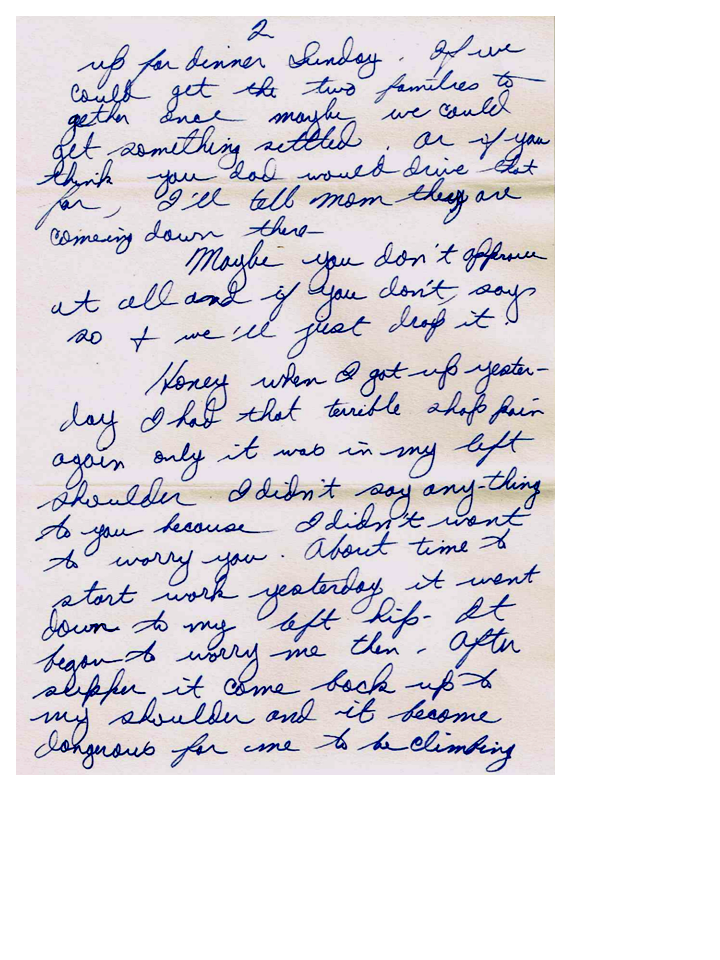 2
up for dinner Sunday. If we
could get the two families to
gether once maybe we could
get something settled. Or if you
think you dad would drive that
far, I'll tell mom they are
comeing down there-
Maybe you don't approve
at all and if you don't, says
so + we'll just drop it.
Honey when I got up yester-
day I had that terrible shap pain
again only it was in my left
shoulder I didn't say any-thing
to you because I didn't want
to worry you. About time to
start work yesterday it went
down to my left hip- It
began to worry me then. After
slipper it come back up to
my shoulder and it become
dangerous for me to be climbing